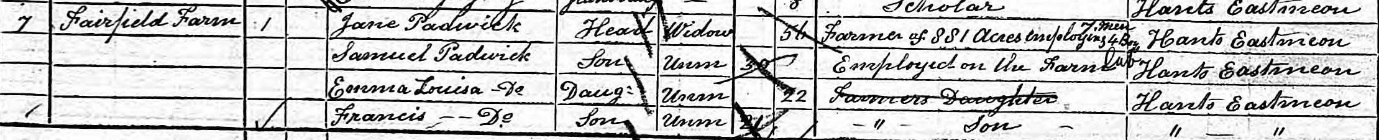 Scholar Hants Eastmeon
7 Fairfield Farm 1 Jane Padwick Head Widow 56 Farmer of 881 Acres employing 7 men 4 Boy Hants Eastmeon
Samuel Padwick Son Unm 30 Employed on the Farm lab Hants Eastmeon
Emma Louisa Do Daug: Unm 22 Farmers Daughter Hants Eastmeon
Francis -- Do Son Unm 21 - " - Son - " "